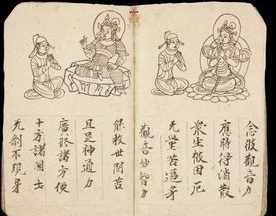 念彼觀音力
應時得消散
衆生被困厄
无量苦逼身
觀音妙智力
能救世間苦
具足神通力
廣修諸方便
十方諸國土
无刹不現身